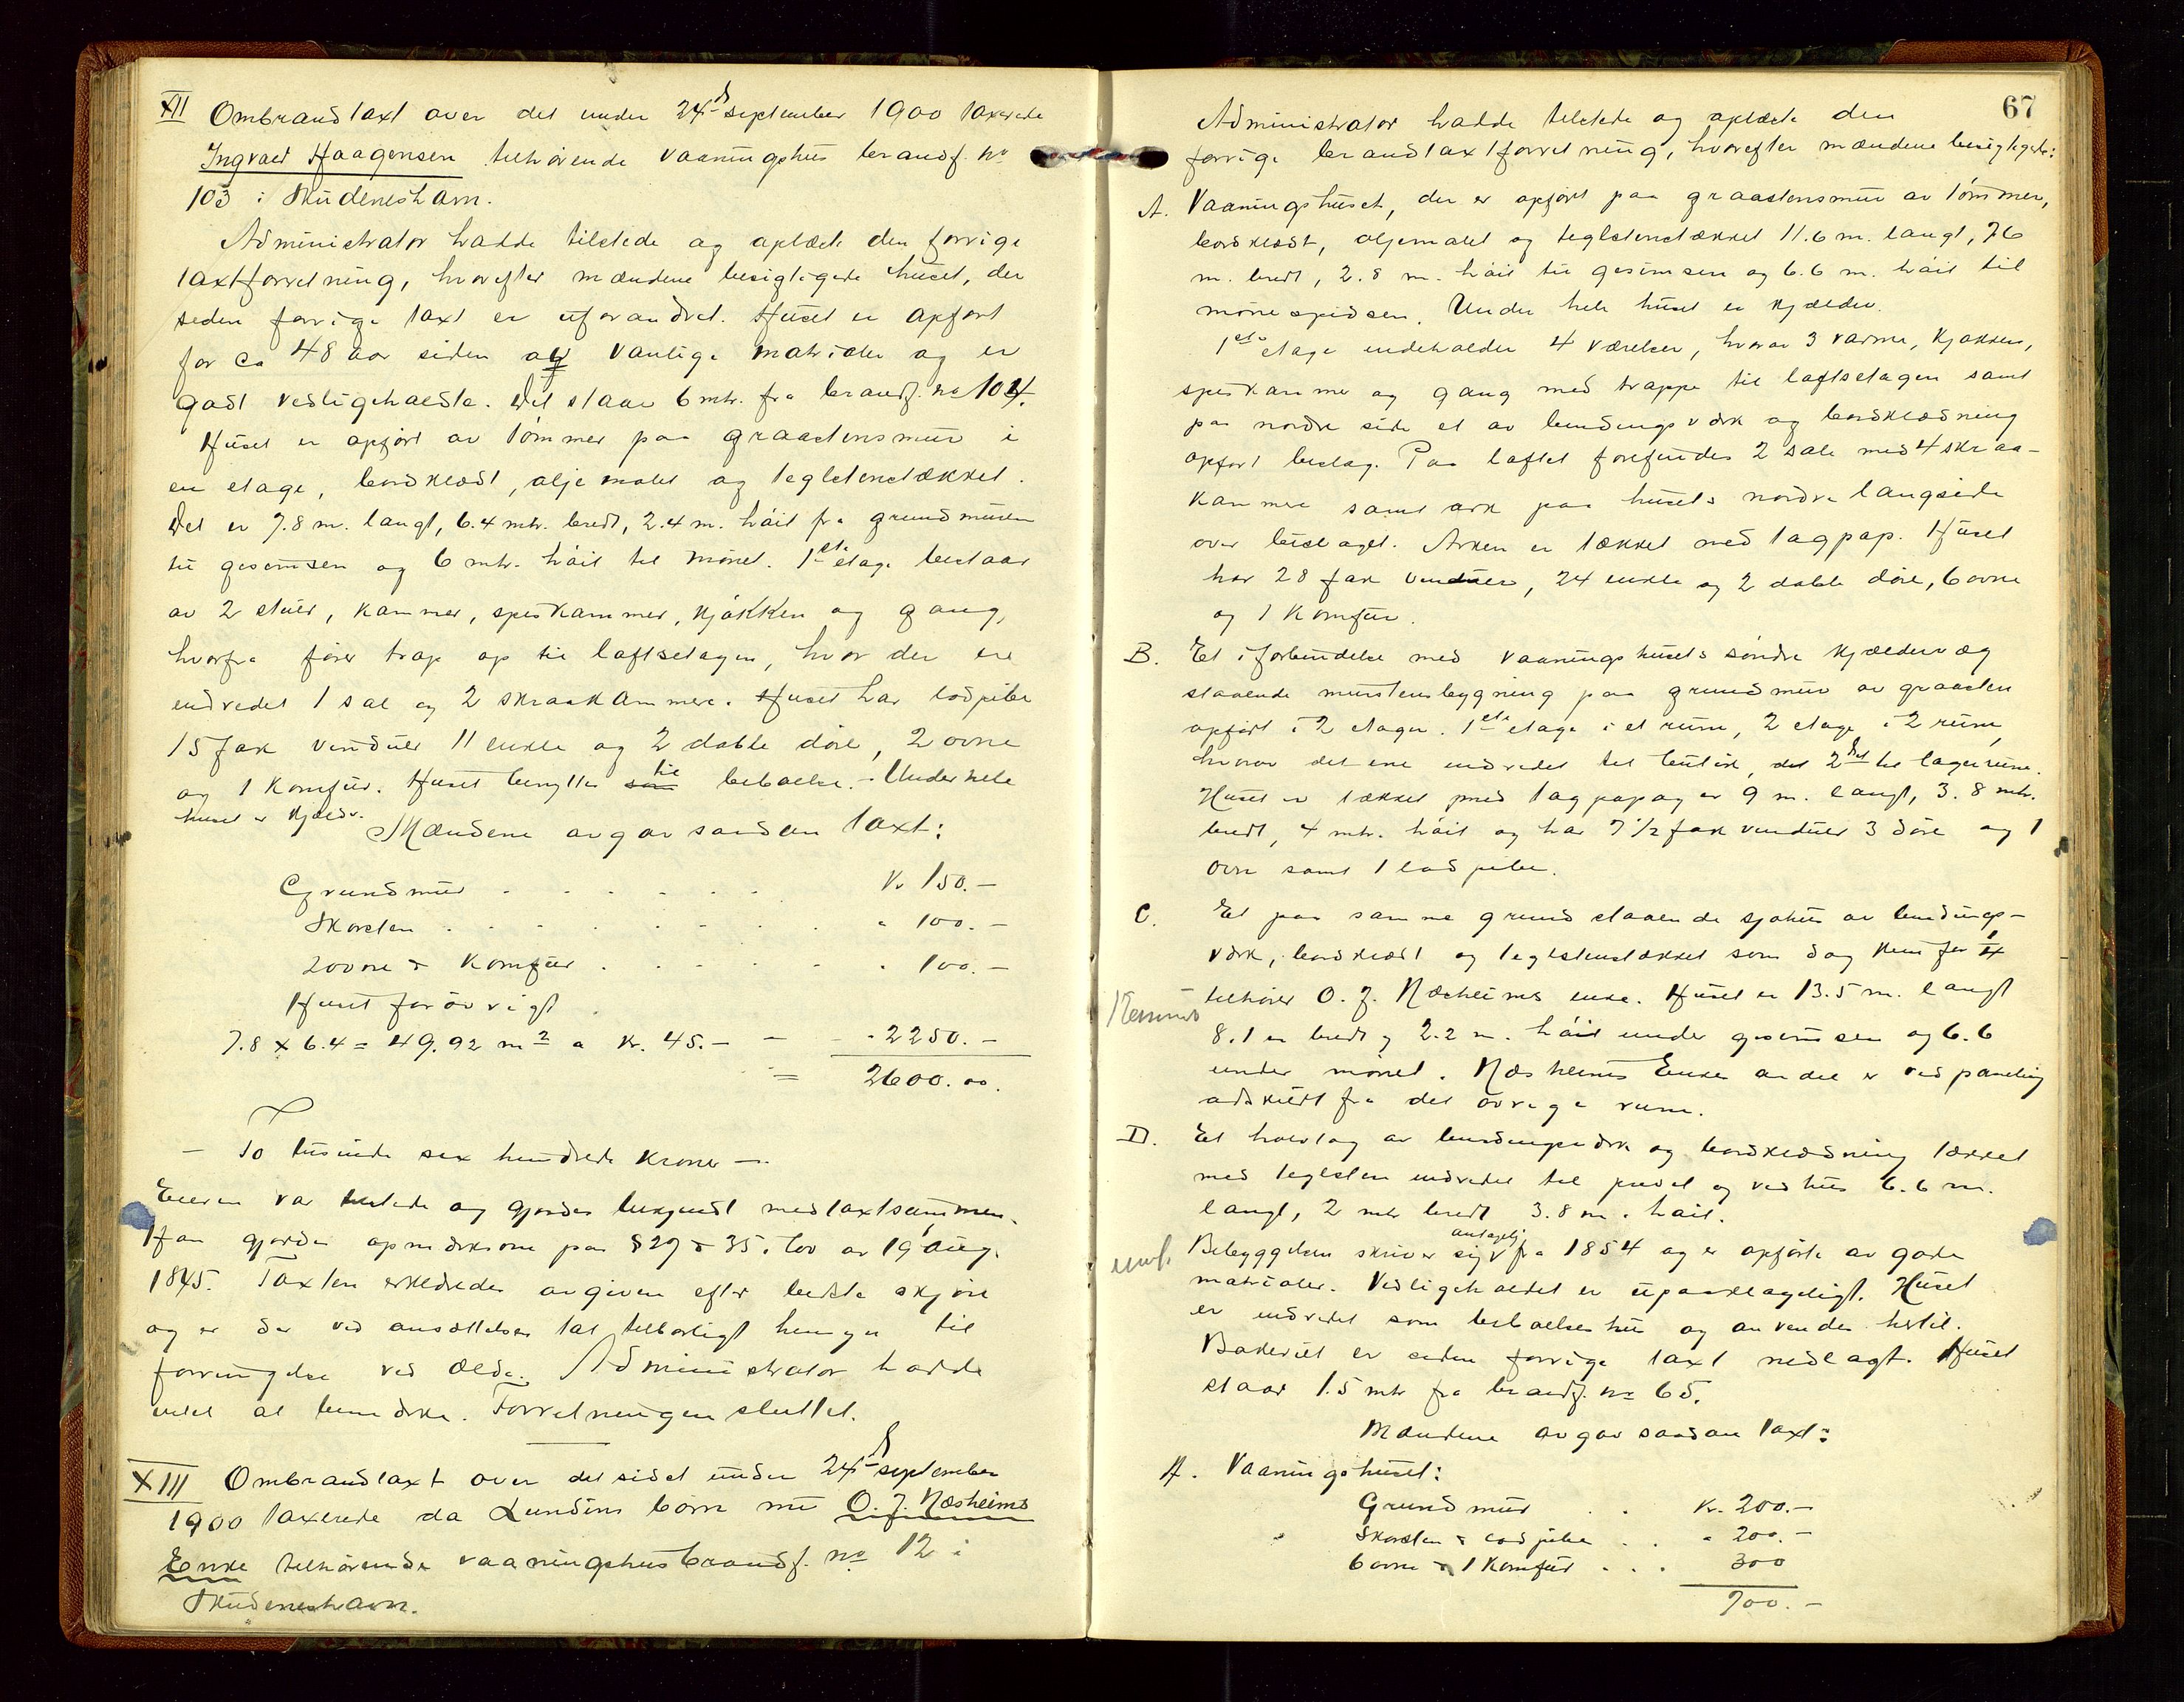 XII Ombrandtaxt over det under 24de september 1900 taxerede
Ingvald Haagensen tilhørende vaaningshus brandf. no
103 i Skudeneshavn.
Administrator hadde tilstede og oplæste den forrige
taxtforretning, hvorefter mændene besigtigede huset, der
siden forrige taxt er uforandret. Huset er opført
for ca 48 aar siden av vanlige matrialer og er
godt vedligeholdte. Det staar 6 mtr. fra brandf. no 104.
Huset er opført av tømmer paa graastensmur i
en etage, bordklædt, oljemalet og teglstenstækket.
Det er 7.8 m. langt, 6.4 mtr. bredt, 2.4 m. høit fra grundmuren
til gesimsen og 6 mtr. høit til mønet. 1ste etage bestaar
av 2 stuer, kammer, spiskammer, kjøkken og gang,
hvorfra fører trap op til loftsetagen, hvor der er
indredet 1 sal og 2 skraakammere. Huset har lodpibe
15 fak vinduer 11 enkle og 2 doble døre, 2 ovne
og 1 komfur. Huset benyttes som til beboelse. - Under hele
huset er kjelder.
Mændene avgav saadan taxt:
Grundmur . . . . . . Kr 150.-
Skorsten . . . . . . . " 100.-
2 ovne & komfur . . . . . " 100.-
Huset forøvrigt
7.8 x 6.4 = 49.92 m2 a kr. 45.- - - 2250.-
= 2600.00.
- To tusinde sex hundrede kroner -
Eieren var tilstede og gjordes bekjendt med taxtsummen.
Han gjordes opmerksom paa § 27 & 35 i lov av 19 aug.
1845. Taxten erklæredes avgiven efter bedste skjøn
og er der ved ansættelsen tat tilbørligt hensyn til
forringelse ved ælde. Administrator hadde
intet at bemærke. Forretningen sluttet.
XIII Ombrandtaxt over det sidst under 24de september
1900 taxerede da Lundins børn nu O. J. Næsheims
Enke tilhørende vaaningshus brandf. no 12 i
Skudeneshavn.
67
Administrator hadde tilstede og oplæste den
forrige brandtaxtforretning, hvorefter mændene besigtigede:
A. Vaaningshuset, der er opført paa graastensmur av tømmer,
bordklædt, oljemalet og teglstenstækket 11.6 m. langt, 7.6
m. bredt, 2.8 m. høit til gesimsen og 6.6 m. høit til
mønespidsen. Under hele huset er kjælder.
1ste etage indeholder 4 værelser, hvorav 3 varme, kjøkken,
spiskammer og gang med trappe til loftsetagen samt
paa nordre side et av bindingsværk og bordklædning
opført bislag. Paa loftet forefindes 2 sale med 4 skraa-
kammere samt ark paa husets nordre langside
over bislaget. Arken er tækket med tagpap. Huset
har 28 fak vinduer, 24 enkle og 2 doble døre, 6 ovne
og 1 komfur.
B. Et i forbindelse med vaaningshusets søndre kjældervæg
staaende murstensbygning paa grundmur av graasten
opført i 2 etager. 1ste etage i et rum, 2 etage i 2 rum,
hvorav det ene indredet til butik, det 2det til lagerrum.
Huset er tækket med tagpap og er 9 m. langt, 3.8 mtr.
bredt, 4 mtr. høit og har 7 1/2 fak vinduer 3 døre og 1
ovn samt 1 lodpibe.
C. Et paa samme grund staaende sjøhus av bindings-
værk, bordklædt og teglstenstækket som dog kun for 1/4
tilhører O. J. Næsheims enke. Huset er 13.5 m. langt
8.1 m bredt og 2.2 m. høit under gesimsen og 6.6
under mønet. Næsheims Enkes andel er ved paneling
adskildt fra det øvrige rum.
D. Et halvtag av bindingsværk og bordklædning tækket
med teglsten indredet til privet og vedhus 6.6 m.
langt, 2 mtr bredt 3.8 m. høit.
Bebyggelsen skriver sig antagelig fra 1854 og er opførte av gode
matrialer. Vedligeholdet er upaaklageligt. Huset
er indredet som beboelseshus og anvendes hertil.
Bakeriet er siden forrige taxt nedlagt. Huset
staar 1.5 mtr fra brandf. no 65.
Mændene avgav saadan taxt:
A. Vaaningshuset:
Grundmur . . Kr. 200.-
Skorsten & lodpibe . . " 200.-
6 ovne & 1 komfur . . . 300
700.-